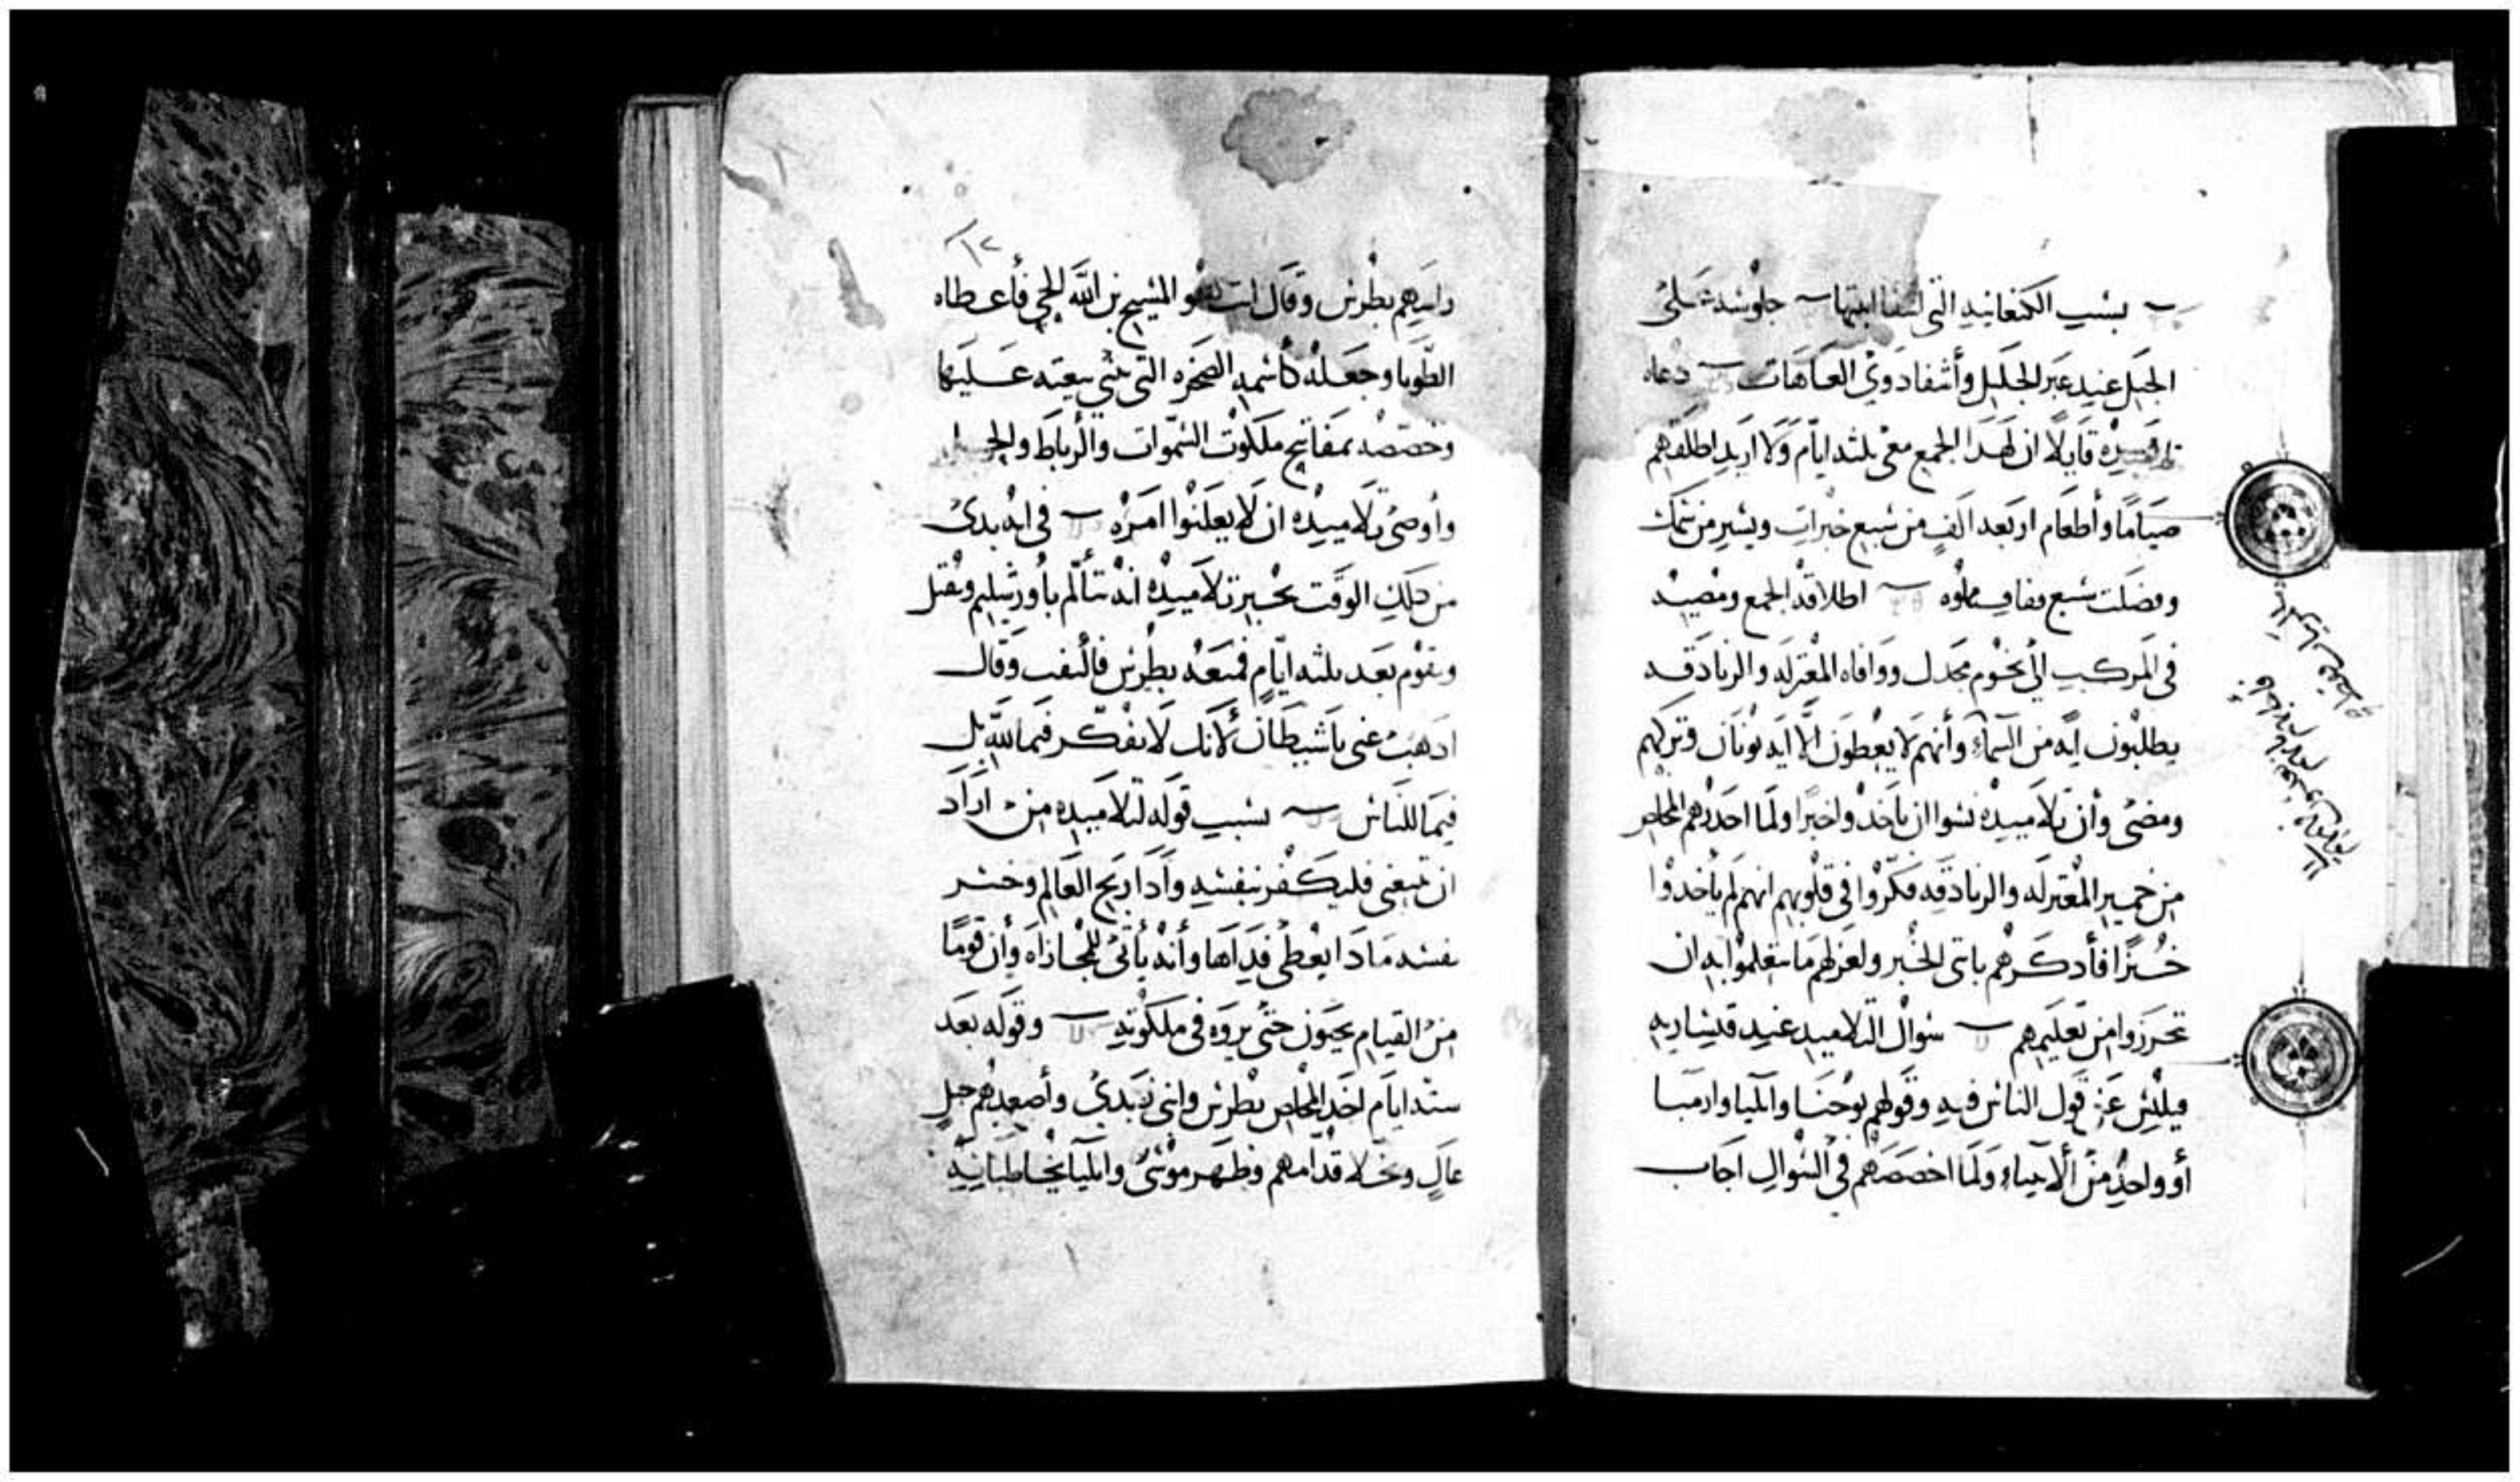 بسبب الكنعانيه التى اشفا ابنتها جلوسه على
الجبل عنيد عبر الجليل وأشفا دوي العاهات دعاه
تلاميده قايلا ان لهدا الجمع معى ثلثه ايام ولا اريد اطلقهم
صياما وأطعام اربعه الف من سبع خبزات ويسير من سمك
وفضلت سبع قفاف مملوه اطلاقه الجمع ومضيه
فى المركب الى تخوم مجدل ووافاه المعتزله والزنادقه
يطلبون ايه من السماء وأنهم لا يعطون الا ايه يونان وتركهم
ومضى وأن تلاميده نسوا ان ياخدوا خبزا ولما احدرهم المخلص
من خمير المعتزله والزنادقه فكروا فى قلوبهم انهم لم يأخدوا
خبزا فأدكرهم بايتى الخبز ولغزلهم ما تعلموا به ان
تحرزوا من تعليمهم سوال التلاميد عنيد قيساريه
فيلبس عن قول الناس فيه وقولهم يوحنا وايليا وارميا
أو واحد من الانبياء ولما اخصصهم فى السوال اجاب
١٢
راسهم بطرس وقال انت هو المسيح بن الله الحى فأعطاه
الطوبا وجعله كأسمه الصخره التى بنى بيعته عليها
وخصصه بمفاتيح ملكوت السموات والرباط والحل
وأوصى تلاميده ان لا يعلنوا امره فى انه بدى
من دلك الوقت يخبر تلاميده انه يتألم بأورشليم ويقتل
ويقوم بعد ثلثه ايام فمنعه بطرس فالتفت وقال
ادهب عنى يا شيطان لانك لا تفكر فيما لله بل
فيما للناس بسبب قوله لتلاميده من اراد
ان يتبعنى فليكفر بنفسه وادا ربح العالم وخسر
نفسه مادا يعطى فداها وأنه يأتى للمجازاه وأن قوما
من القيام يحيون حتى يروه فى ملكوته وقوله بعد
سته ايام اخد المخلص بطرس وابنى زبدى وأصعدهم جبل
عال وتجلا قدامهم وظهر موسى وايليا يخاطبانه